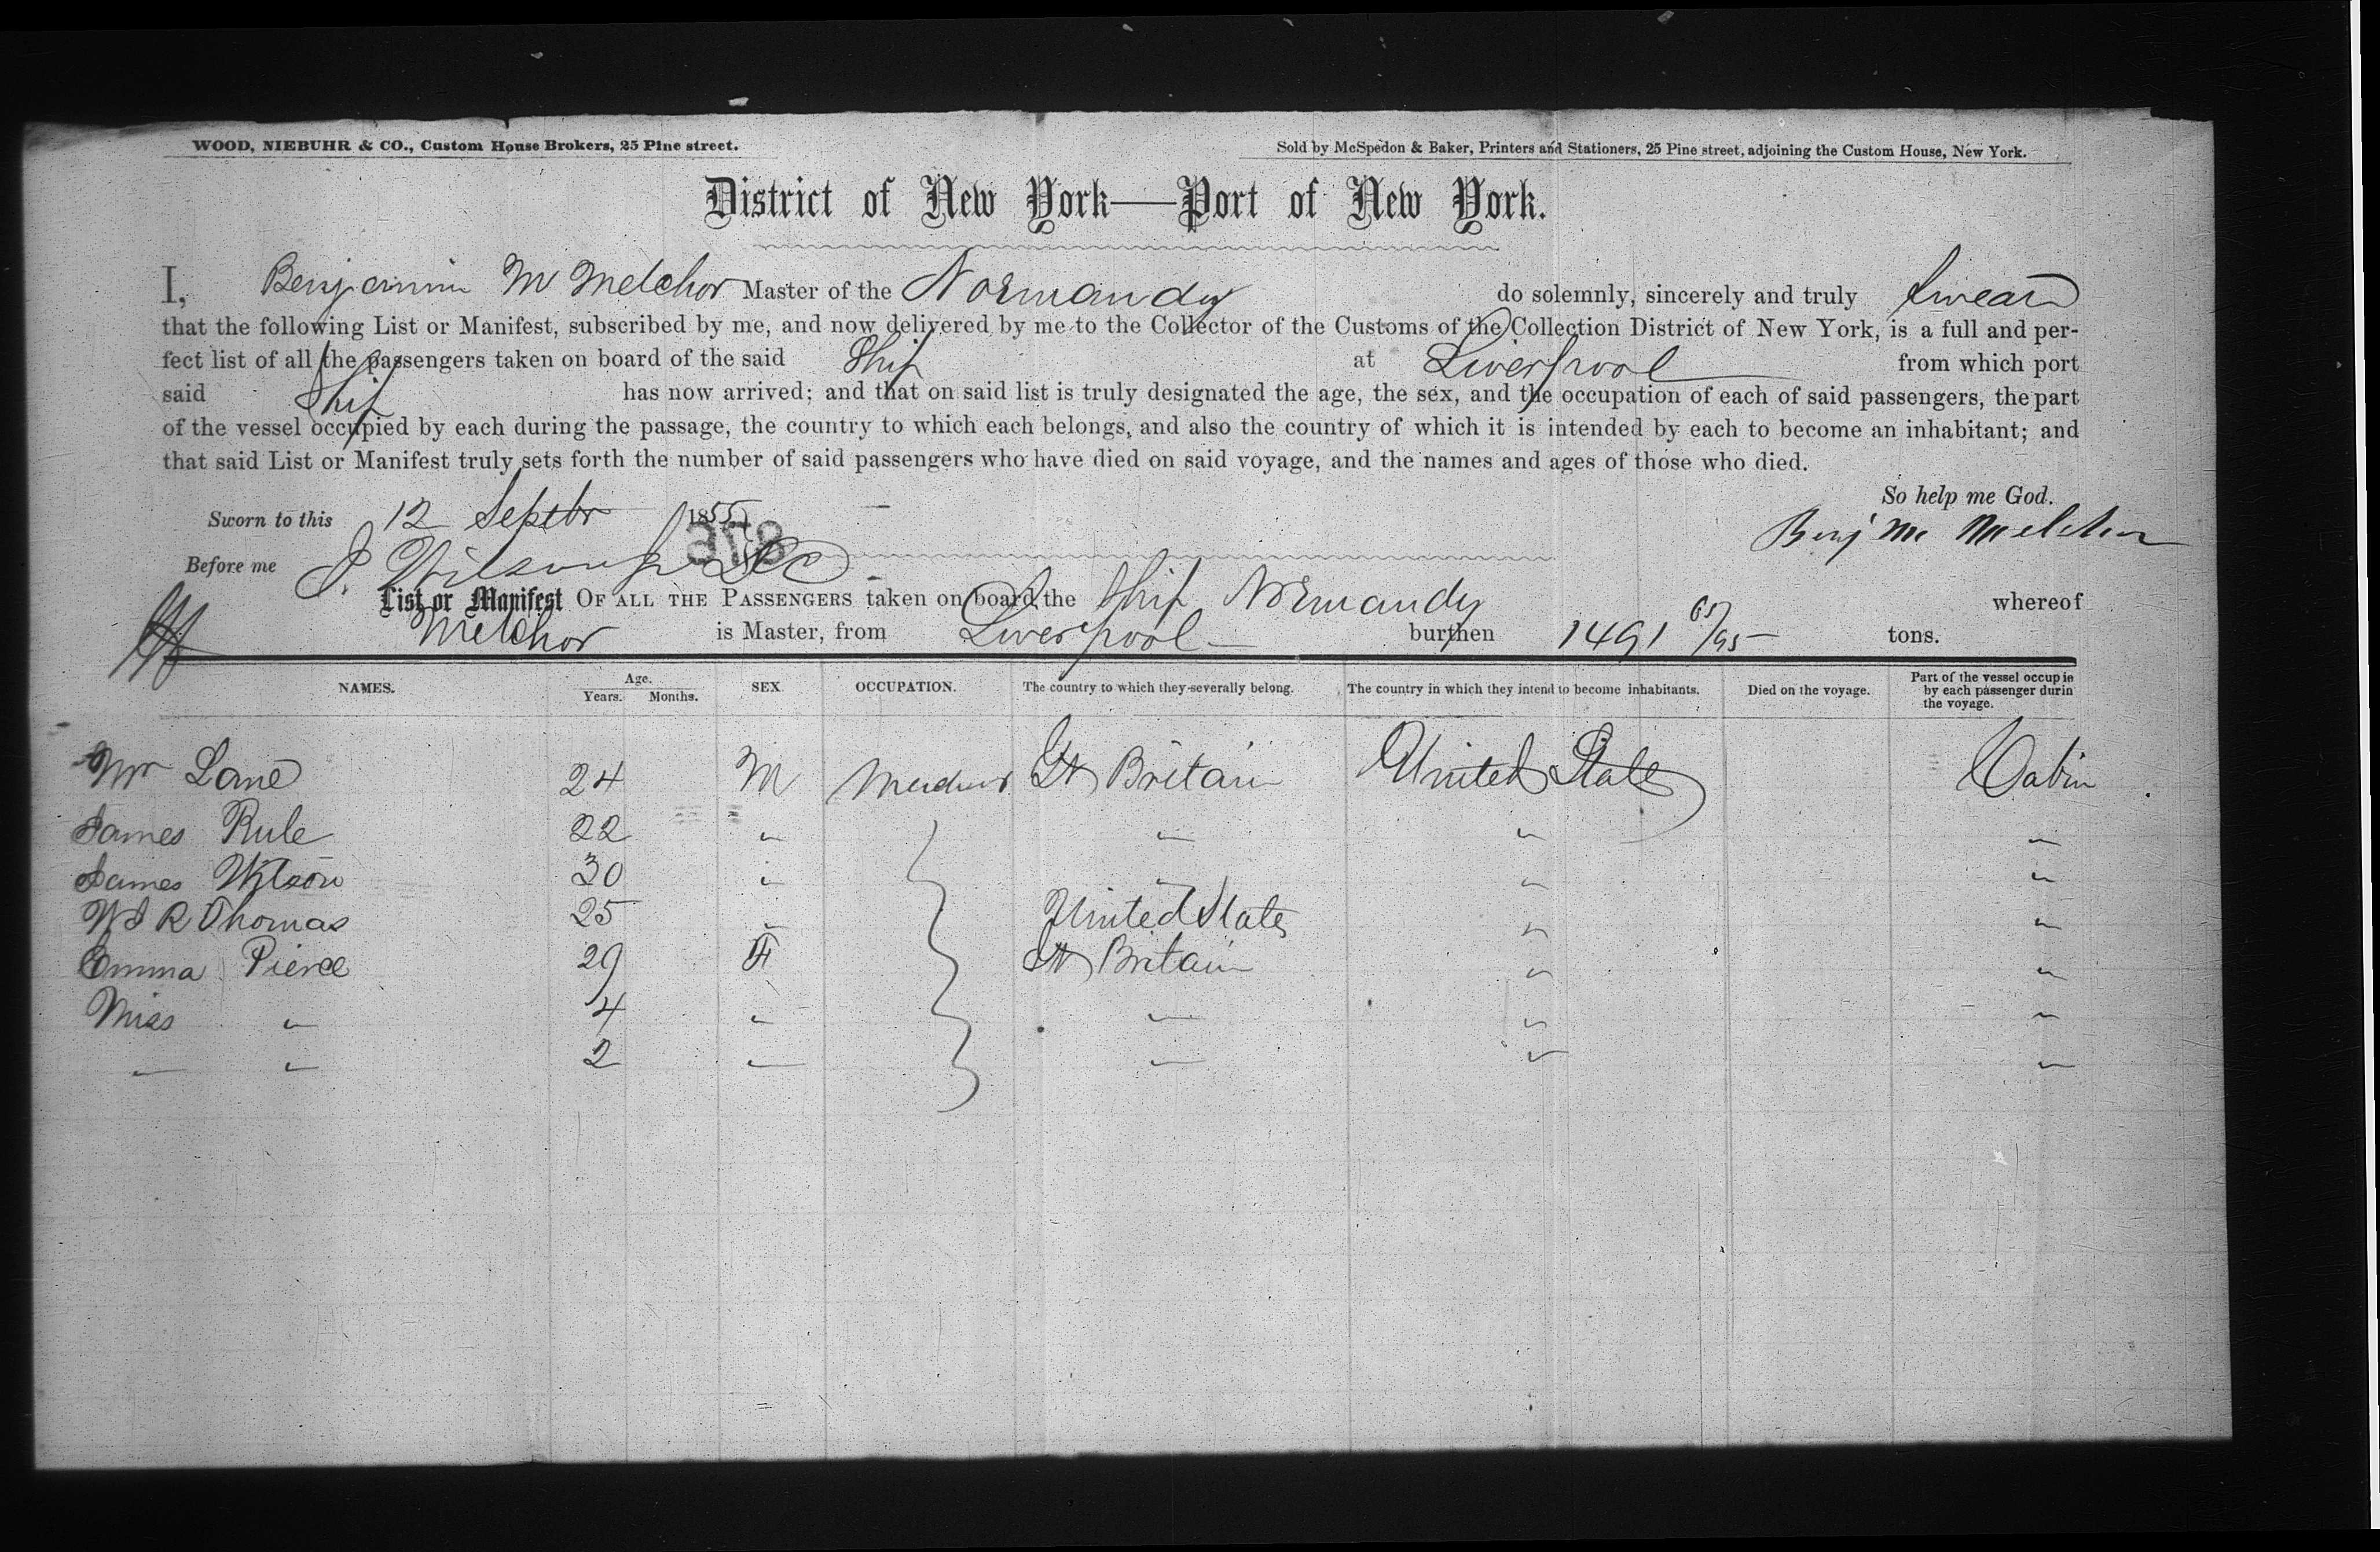 WOOD, NIEBUHR & CO., Custom House Brokers, 25 Pine street.
Sold by McSpedon & Baker, Printers and Stationers, 25 Pine street, adjoining the Custom House, New York.
District of New York—Port of New York.
I, Benjamin M Melchor Master of the Normandy do solemnly, sincerely and truly Swear
that the following List or Manifest, subscribed by me, and now delivered by me to the Collector of the Customs of the Collection District of New York, is a full and per-
fect list of all the passengers taken on board of the said Ship at Liverpool from which port
said Ship has now arrived; and that on said list is truly designated the age, the sex, and the occupation of each of said passengers, the part
of the vessel occupied by each during the passage, the country to which each belongs, and also the country of which it is intended by each to become an inhabitant; and
that said List or Manifest truly sets forth the number of said passengers who have died on said voyage, and the names and ages of those who died.
So help me God.
Sworn to this 12 Septbr 1855
Benj M Melchor
378
Before me J. Wilson
List or Manifest OF ALL THE PASSENGERS taken on board the Ship Normandy whereof
Melchor is Master, from Liverpool burthen 1491 /95 tons.
NAMES. Age. Years. Months. SEX. OCCUPATION. The country to which they severally belong. The country in which they intend to become inhabitants. Died on the voyage. Part of the vessel occupie by each passenger durin the voyage.
Mr Lane 24 M Gt Britain United States Cabin
James Rule 22 " " " "
James Wilson 30 " " " "
W R Thomas 25 " United States " "
Emma Pierce 29 F Gt Britain " "
Miss " 4 " " " "
" " 2 " " " "